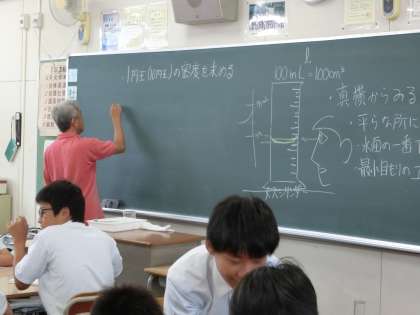 1円玉(10円玉)の密度を求める
100mL = 100cm³
・真横からみる
・平らな所に
・水面の一番下
・最小目もりの
メスシリンダー